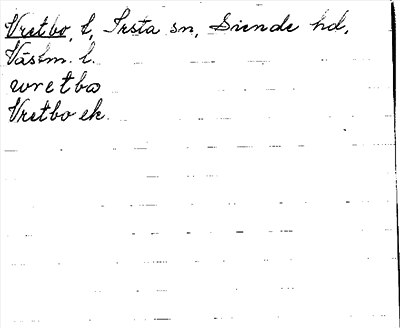 Vretbo, t, Irsta sn, Siende hd,
Västm. l.
wretbo
Vretbo ek.